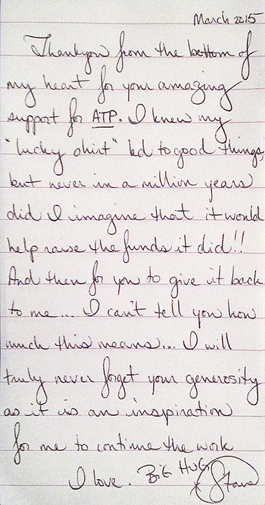 March 2015
Thankyou from the bottom of
my heart for your amazing
support for ATP. I knew my
"lucky shirt" led to good things,
but never in a million years
did I imagine that it would
help raise the funds it did!!
And then for you to give it back
to me... I can't tell you how
much this means... I will
truly never forget your generosity
as it is an inspiration
for me to continue the work
I love. BIG HUG